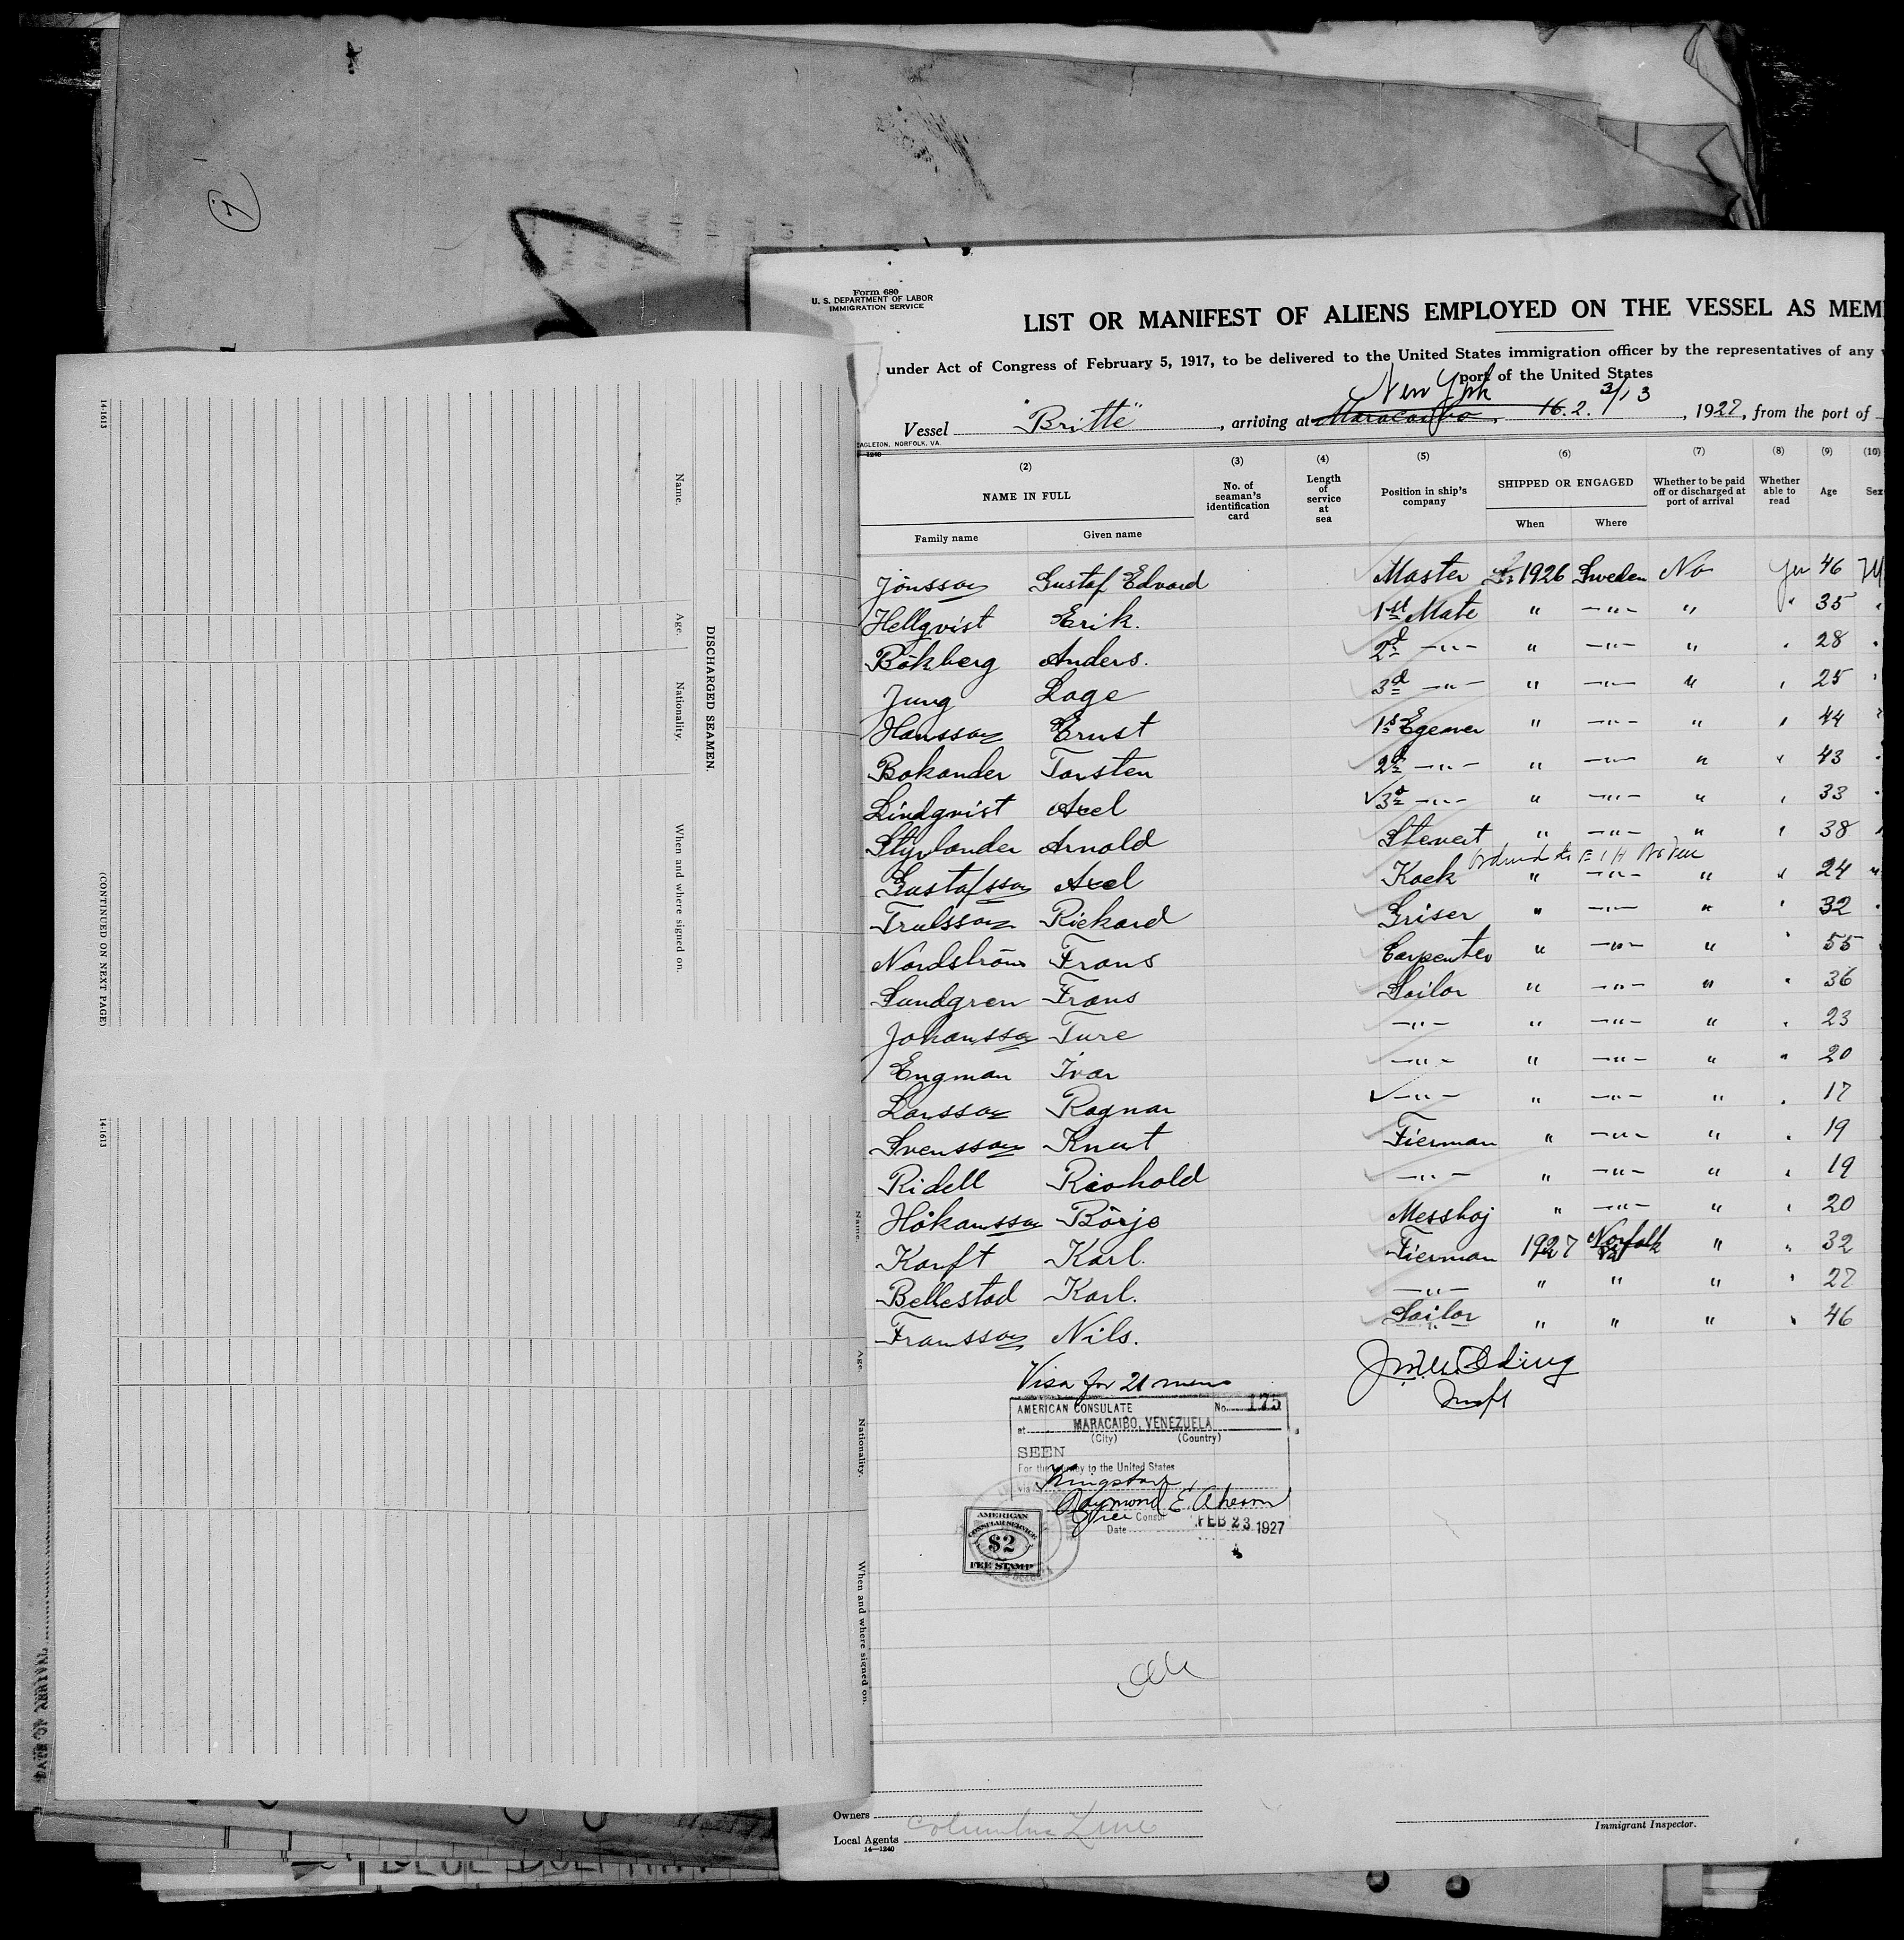 7
14-1613
Name.
Age.
Nationality.
When and where signed on.
DISCHARGED SEAMEN.
(CONTINUED ON NEXT PAGE)
14-1613
Name.
Age.
Nationality.
When and where signed on.
Form 680
U. S. DEPARTMENT OF LABOR
IMMIGRATION SERVICE
LIST OR MANIFEST OF ALIENS EMPLOYED ON THE VESSEL AS MEM
under Act of Congress of February 5, 1917, to be delivered to the United States immigration officer by the representatives of any
port of the United States
New York 3/13
Vessel "Britte" , arriving at Maracaibo, 16.2. , 1927, from the port of
EAGLETON, NORFOLK, VA.
1240
(2) (3) (4) (5) (6) (7) (8) (9) (10)
NAME IN FULL No. of seaman's identification card Length of service at sea Position in ship's company SHIPPED OR ENGAGED Whether to be paid off or discharged at port of arrival Whether able to read Age Sex
Family name Given name When Where
Jönsson Gustaf Edvard Master 1926 Sweden No Yes 46 M
Hellqvist Erik. 1st Mate " —"— " " 35 "
Bökberg Anders. 2d —"— " —"— " " 28 "
Jung Lage 3d —"— " —"— " " 25 "
Hansson Ernst 1st Egener " —"— " " 44 "
Bokander Torsten 2d —"— " —"— " " 43 "
Lindqvist Axel 3d —"— " —"— " " 33 "
Stylander Arnold Stewert " —"— " " 38 "
Gustafsson Axel Kock " —"— " " 24 "
Trulsson Rickard Griser " —"— " " 32 "
Nordström Frans Carpenter " —"— " " 55
Sundgren Frans Sailor " —"— " " 36
Johansson Ture —"— " —"— " " 23
Engman Ivar —"— " —"— " " 20
Larsson Ragnar —"— " —"— " " 17
Svensson Knut Fierman " —"— " " 19
Ridell Rickold —"— " —"— " " 19
Håkansson Börje Messboj " —"— " " 20
Karft Karl. Fierman 1927 Norfolk " " 32
Bellestad Karl. —"— " " " " 27
Fransson Nils. Sailor " " " " 46
Visa for 21 mens
AMERICAN CONSULATE No. 175
at MARACAIBO, VENEZUELA
(City) (Country)
SEEN
For the journey to the United States
via Kingston,
Raymond E. Ahearn
Vice Consul
Date FEB 23 1927
AMERICAN
CONSULAR SERVICE
$2
FEE STAMP
Owners
Local Agents Columbus Line
14—1240
Immigrant Inspector.